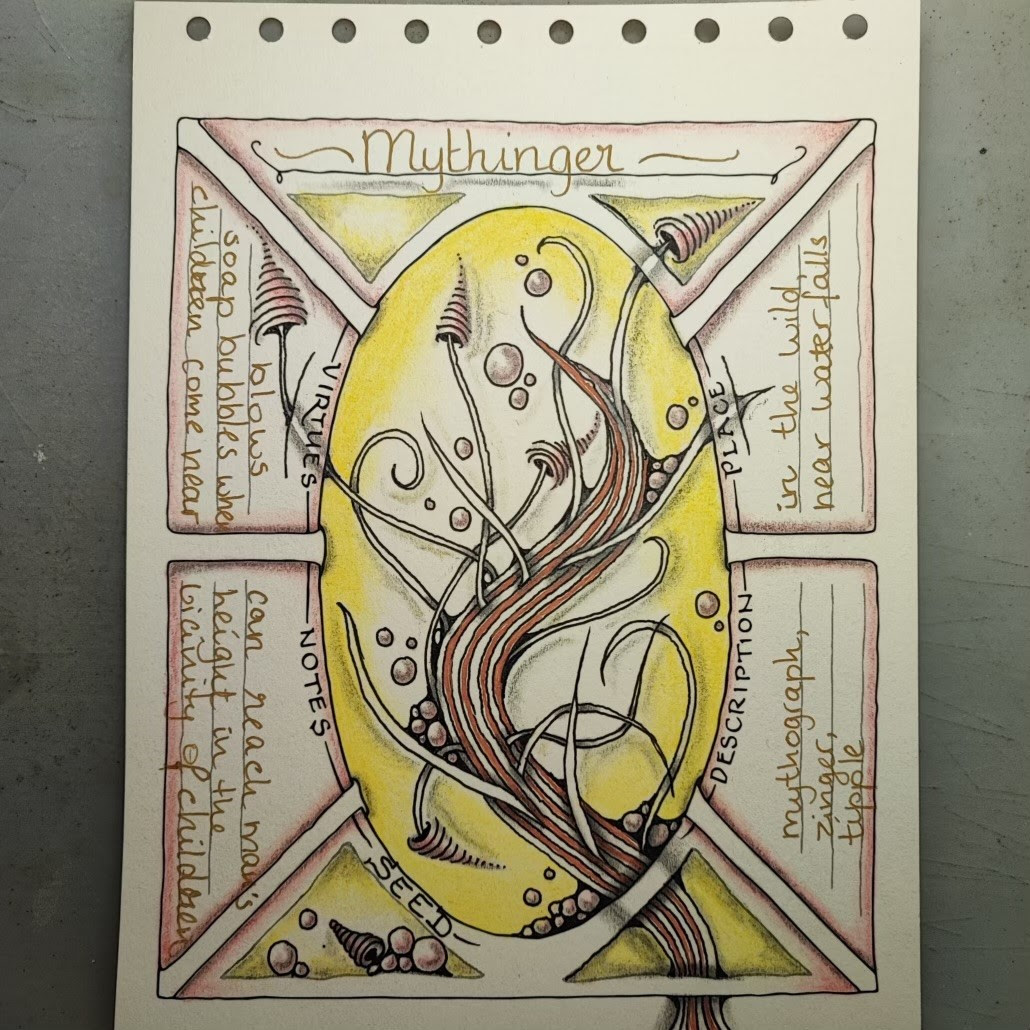 Mythinger
VIRTUES
blows
soap bubbles when
childeren come near
PLACE
in the wild
near waterfalls
NOTES
can reach man's
height in the
vicinity of childeren
DESCRIPTION
mythograph,
zinger,
tipple
SEED